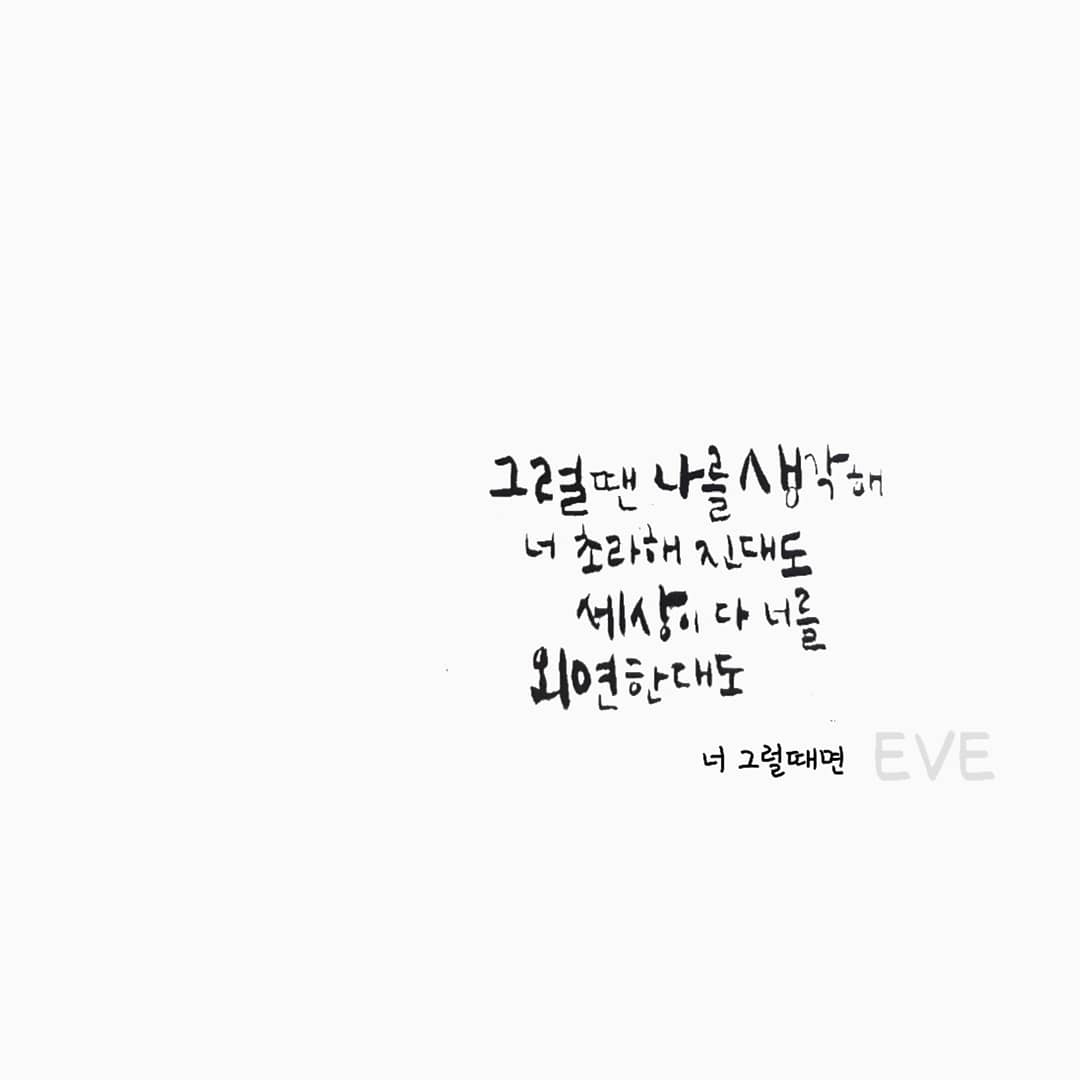 그럴땐 나를 생각해
너 초라해 진대도
세상이 다 너를
외면한대도
너 그럴때면 EVE